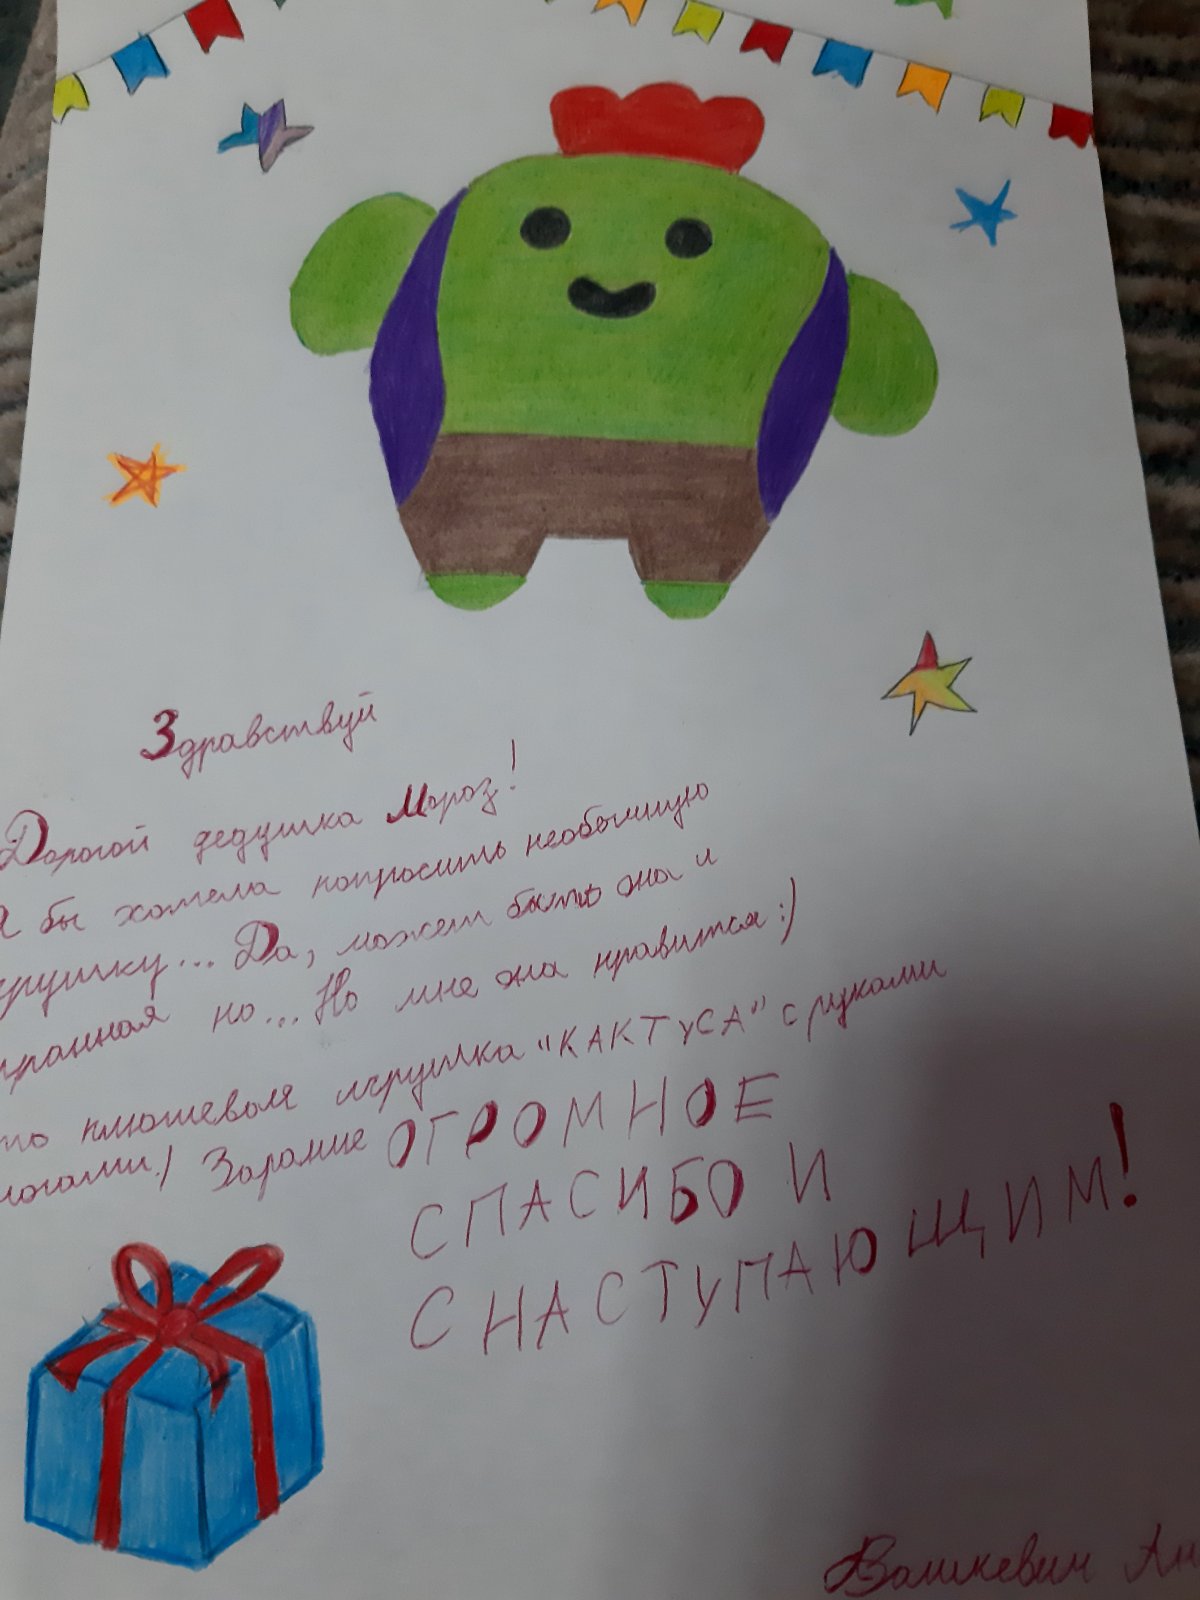 Здравствуй
Дорогой дедушка Мороз!
Я бы хотела попросить необычную
грушку... Да, может быть она и
транная но... Но мне она нравится :)
то плюшевая игрушка "КАКТУСА" с руками
ногами!) Зарание ОГРОМНОЕ
СПАСИБО И
С НАСТУПАЮЩИМ!